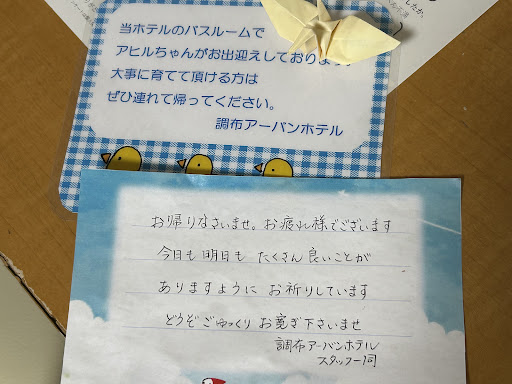 当ホテルのバスルームで
アヒルちゃんがお出迎えしております。
大事に育てて頂ける方は
ぜひ連れて帰ってください。
調布アーバンホテル
お帰りなさいませ。お疲れ様でございます
今日も明日も たくさん良いことが
ありますように お祈りしています
どうぞ ごゆっくり お寛ぎ下さいませ
調布アーバンホテル
スタッフ一同